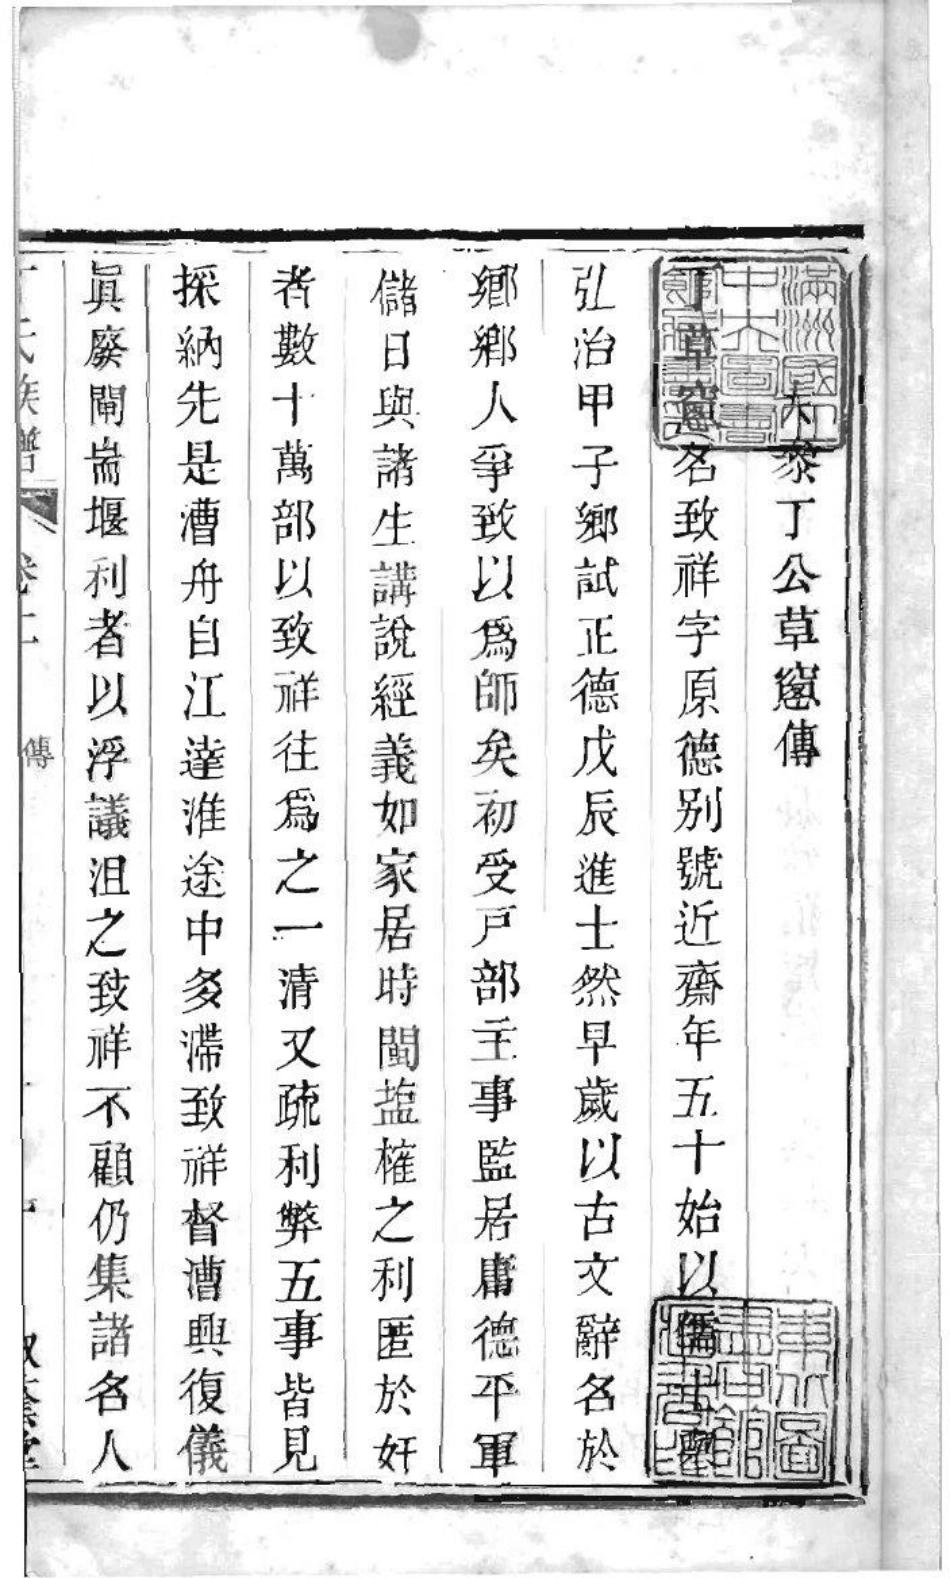 大參丁公草窗傳
丁草窗名致祥字原德別號近齋年五十始以儒士舉
弘治甲子鄉試正德戊辰進士然早歲以古文辭名於
鄉鄉人爭致以爲師矣初受戸部主事監居庸德平軍
儲日與諸生講說經義如家居時閩塩榷之利匿於奸
者數十萬部以致祥往爲之一清又疏利弊五事皆見
採納先是漕舟自江達淮途中多滯致祥督漕興復儀
眞廢閘耑堰利者以浮議沮之致祥不顧仍集諸名人
丁氏族譜 卷十二 傳
滿洲國立中央圖書館籌備處